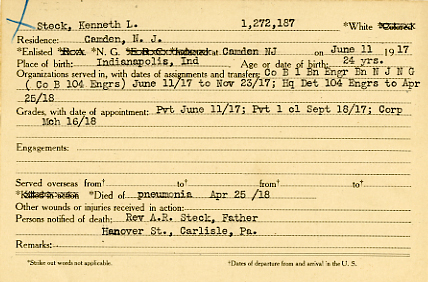 Steck, Kenneth L. 1,272,187 *White *Colored
Residence: Camden, N. J.
*Enlisted *R.A. *N. G. *E.R.C. *Inducted at Camden NJ on June 11 1917
Place of birth: Indianapolis, Ind Age or date of birth: 24 yrs.
Organizations served in, with dates of assignments and transfers: Co B 1 Bn Engr Bn N J N G
( Co B 104 Engrs) June 11/17 to Nov 23/17; Hq Det 104 Engrs to Apr
25/18
Grades, with date of appointment: Pvt June 11/17; Pvt 1 cl Sept 18/17; Corp
Mch 16/18
Engagements:
Served overseas from† to† from† to†
*Killed in action *Died of pneumonia Apr 25 /18
Other wounds or injuries received in action:
Persons notified of death: Rev A.R. Steck, Father
Hanover St., Carlisle, Pa.
Remarks:
*Strike out words not applicable. †Dates of departure from and arrival in the U. S.